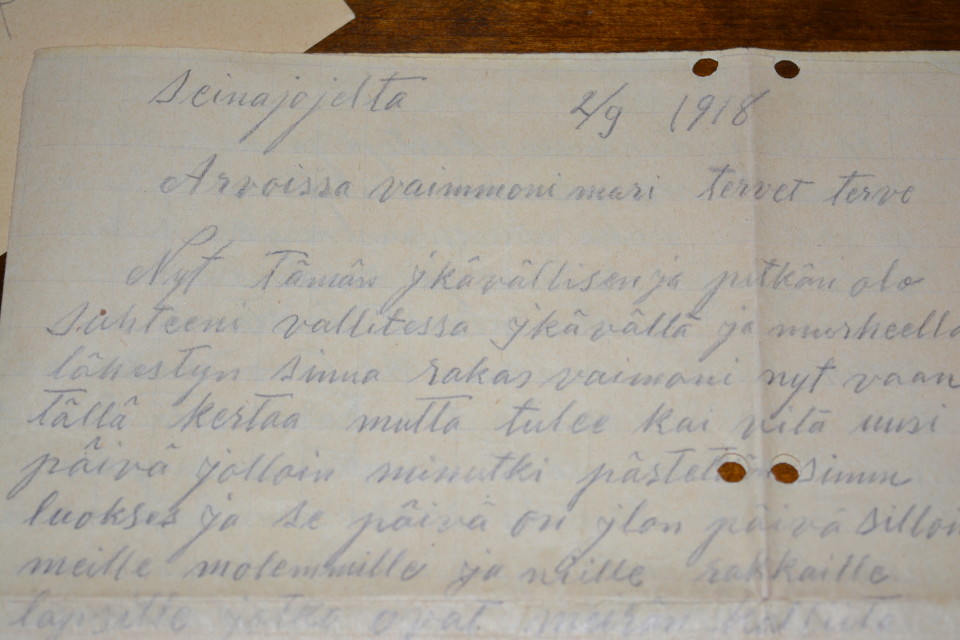 Seinajojelta 2/9 1918
Arvoissa vaimmoni mari tervet terve
Nyt Tämän ykävällisen ja pitkän olo
suhteeni vallitessa ykävällä ja murheella
lähestyn sinua rakas vaimoni nyt vaan
tällä kertaa mutta tulee kai vitä uusi
päivä jolloin minutki pästetän sinun
luokses ja se päivä on ylon päivä silloin
meille molemmille ja meille rakkaille
lapsille jotka ovat meirän